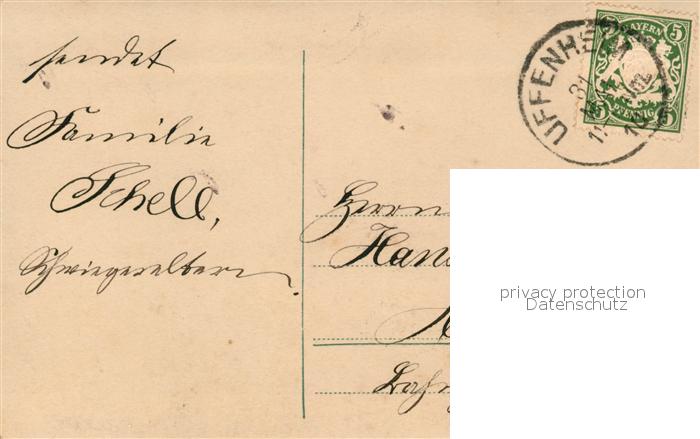 sendet
Familie
Schell,
Schwiegereltern.
BAYERN
5
5
PFENNIG
5
UFFENHEIM
31
Herrn
privacy protection
Datenschutz